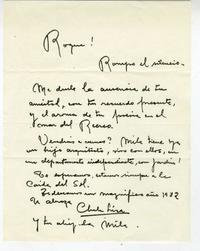 Roque!
Rompo el silencio.
Me duele la ausencia de tu
amistad, con tu recuerdo presente,
y el aroma de tu poesía en el
mar del Recreo.
Vendrás a vernos? Mila tiene ya
un hijo arquitecto, vivo con ellos, en
un departamento independiente, con jardín!
Te esperamos, estamos siempre a la
Caída del Sol.
Te deseamos un magnífico año 1982
Un abrazo
Y tu amiga Mila